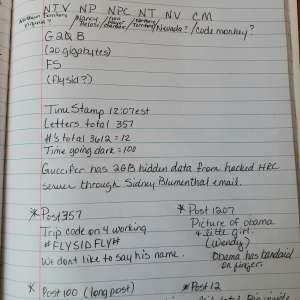 NTV NP NPC NT NV CM
Northern Territory Nevada? / Code monkey?
G2QB
(20 gigabytes)
FS
(flysid?)
TimeStamp 12:07est
Letters total 357
#'s total 3612 = 12
Time going dark = 100
Guccifer has 2GB hidden data from hacked HRC
server through Sidney Blumenthal email.
* Post 357
Trip code on 4 working
#FLYSIDFLY#
We dont like to say his name.
* Post 1207
Picture of Obama
+ little girl.
(Wendy)
Obama has bandaid
on finger.
* Post 100 (long post)
* Post 12